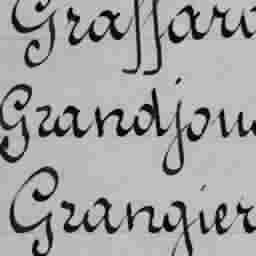 Graffard
Grandjou
Grangier